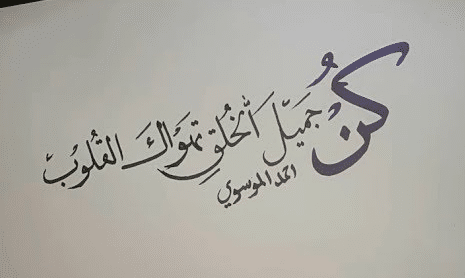 كُن جَميلَ الخُلقِ تهوَاكَ القُلوبْ
احمد الموسوي